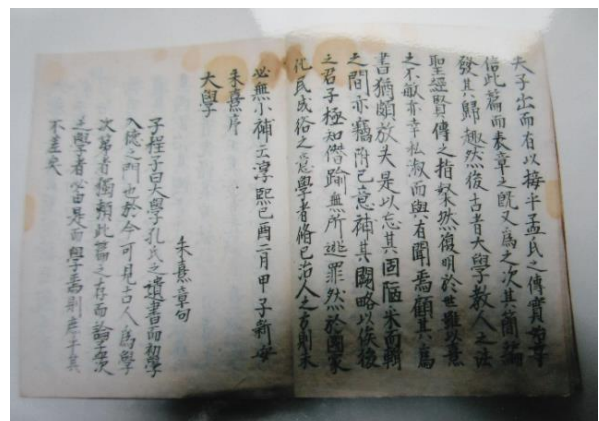 夫子出而有以接乎孟氏之傳實始尊
信此篇而表章之既又爲之次其簡編
發其歸趣然後古者大學教人之法
聖經賢傳之指粲然復明於世雖以熹
之不敏亦幸私淑而與有聞焉顧其爲
書猶頗放失是以忘其固陋采而輯
之間亦竊附己意補其闕略以俟後
之君子極知僭踰無所逃罪然於國家
化民成俗之意學者脩己治人之方則未
必無小補云淳熙己酉二月甲子新安
朱熹序
大學
朱熹章句
子程子曰大學孔氏之遺書而初學
入德之門也於今可見古人爲學
次第者獨賴此篇之存而論孟次
之學者必由是而學焉則庶乎其
不差矣